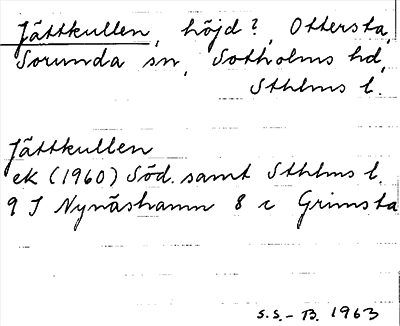 Jättkullen, höjd?, Ottersta,
Sorunda sn, Sotholms hd,
Sthlms l.
Jättkullen
ek (1960) Söd. samt Sthlms l.
9 I Nynäshamn 8 c Grimsta
S.S.-B. 1963